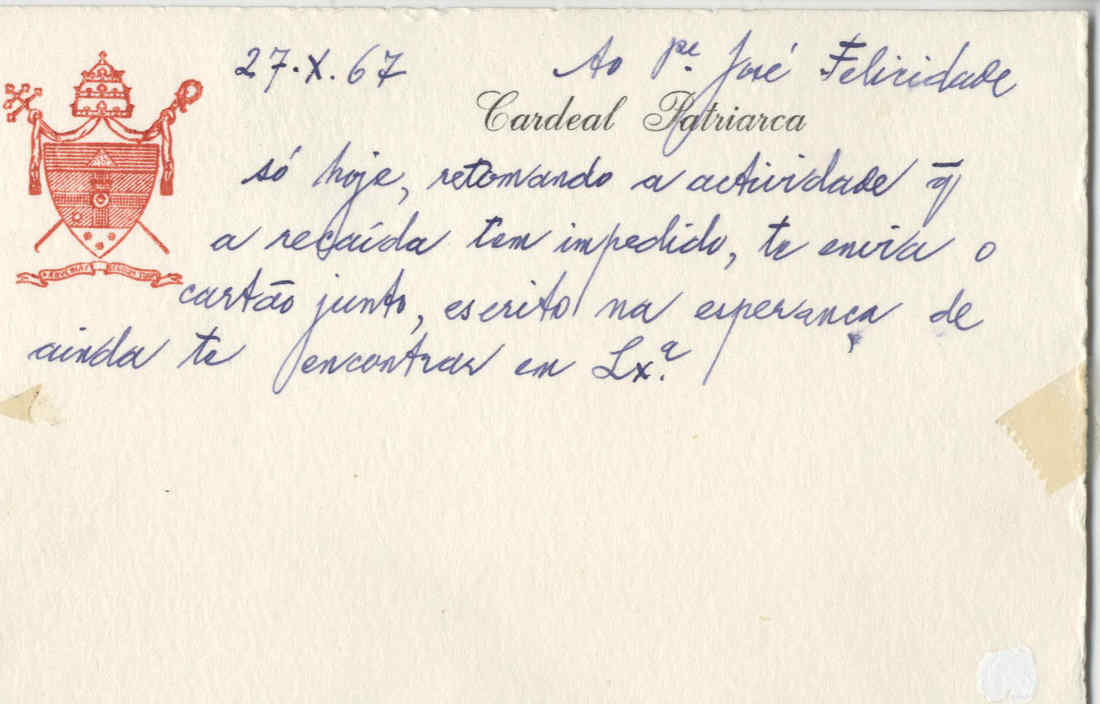 27.X.67 Ao Pe. José Felicidade
Cardeal Patriarca
só hoje, retomando a actividade q̄
a recaída tem impedido, te envia o
cartão junto, escrito na esperança de
ainda te encontrar em Lx.ª